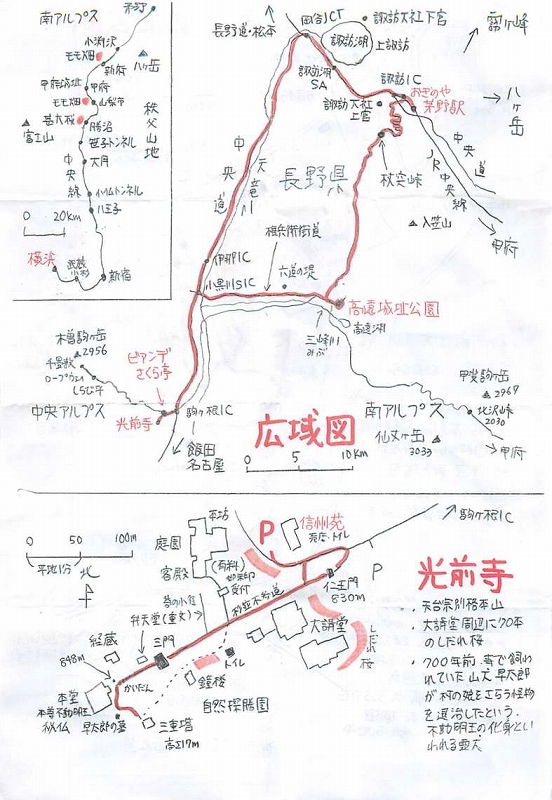 南アルプス
茅野
小淵沢
モモ畑
新府
八ヶ岳
甲府城址
甲府
モモ畑
山梨市
甚六桜
勝沼
笹子トンネル
大月
富士山
秩父山地
中央線
小仏トンネル
八王子
0 20km
横浜
武蔵小杉
新宿
岡谷JCT
諏訪大社下宮
霧ヶ峰
長野道・松本
諏訪湖
上諏訪
諏訪湖SA
諏訪IC
おぎのや
茅野駅
八ヶ岳
諏訪大社上宮
中央道
天竜川
長野県
杖突峠
中央道
JR中央線
入笠山
甲府
権兵衛街道
伊那IC
六道の堤
小黒川SIC
高遠城址公園
高遠湖
三峰川
みぶ
木曽駒ヶ岳
2956
千畳敷
ロープウェイ
しらび平
ビアンデさくら亭
中央アルプス
光前寺
駒ヶ根IC
飯田
名古屋
広域図
0 5 10km
甲斐駒ヶ岳
2967
南アルプス
北沢峠
2030
仙丈ヶ岳
3033
甲府
駒ヶ根IC
0 50 100m
平地1分
北
本坊
庭園
客殿
(有料)
御朱印
受付
P
信州苑
売店・トイレ
仁王門
830m
P
光前寺
弁天堂(重文)
杉並木参道
三門
経蔵
848m
大講堂
しだれ桜
トイレ
鐘楼
本堂
本尊不動明王
秘仏
かいだん
早太郎の墓
三重塔
高さ17m
自然探勝園
・天台宗別格本山
・大講堂周辺に70本
のしだれ桜
・700年前、寺で飼わ
れていた山犬早太郎
が村の娘をさらう怪物
を退治したという。
不動明王の化身とい
われる霊犬